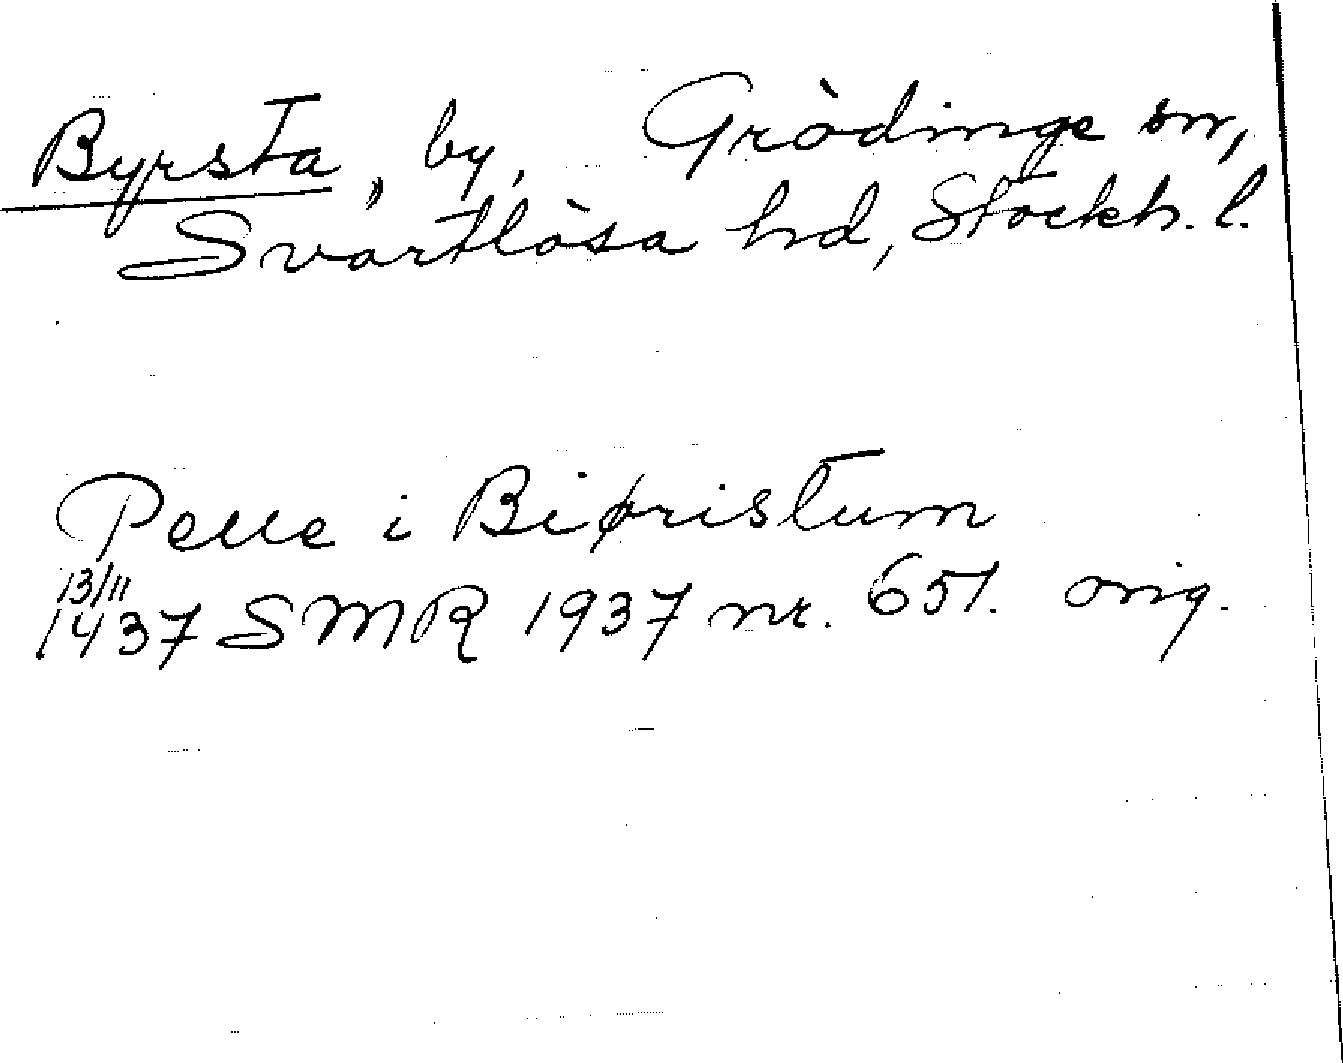 Byrsta, by, Grödinge sn,
Svartlösa hd, Stockh. l.
Pelle i Biøristum
13/11
1437 SMR 1937 nr. 651. orig.